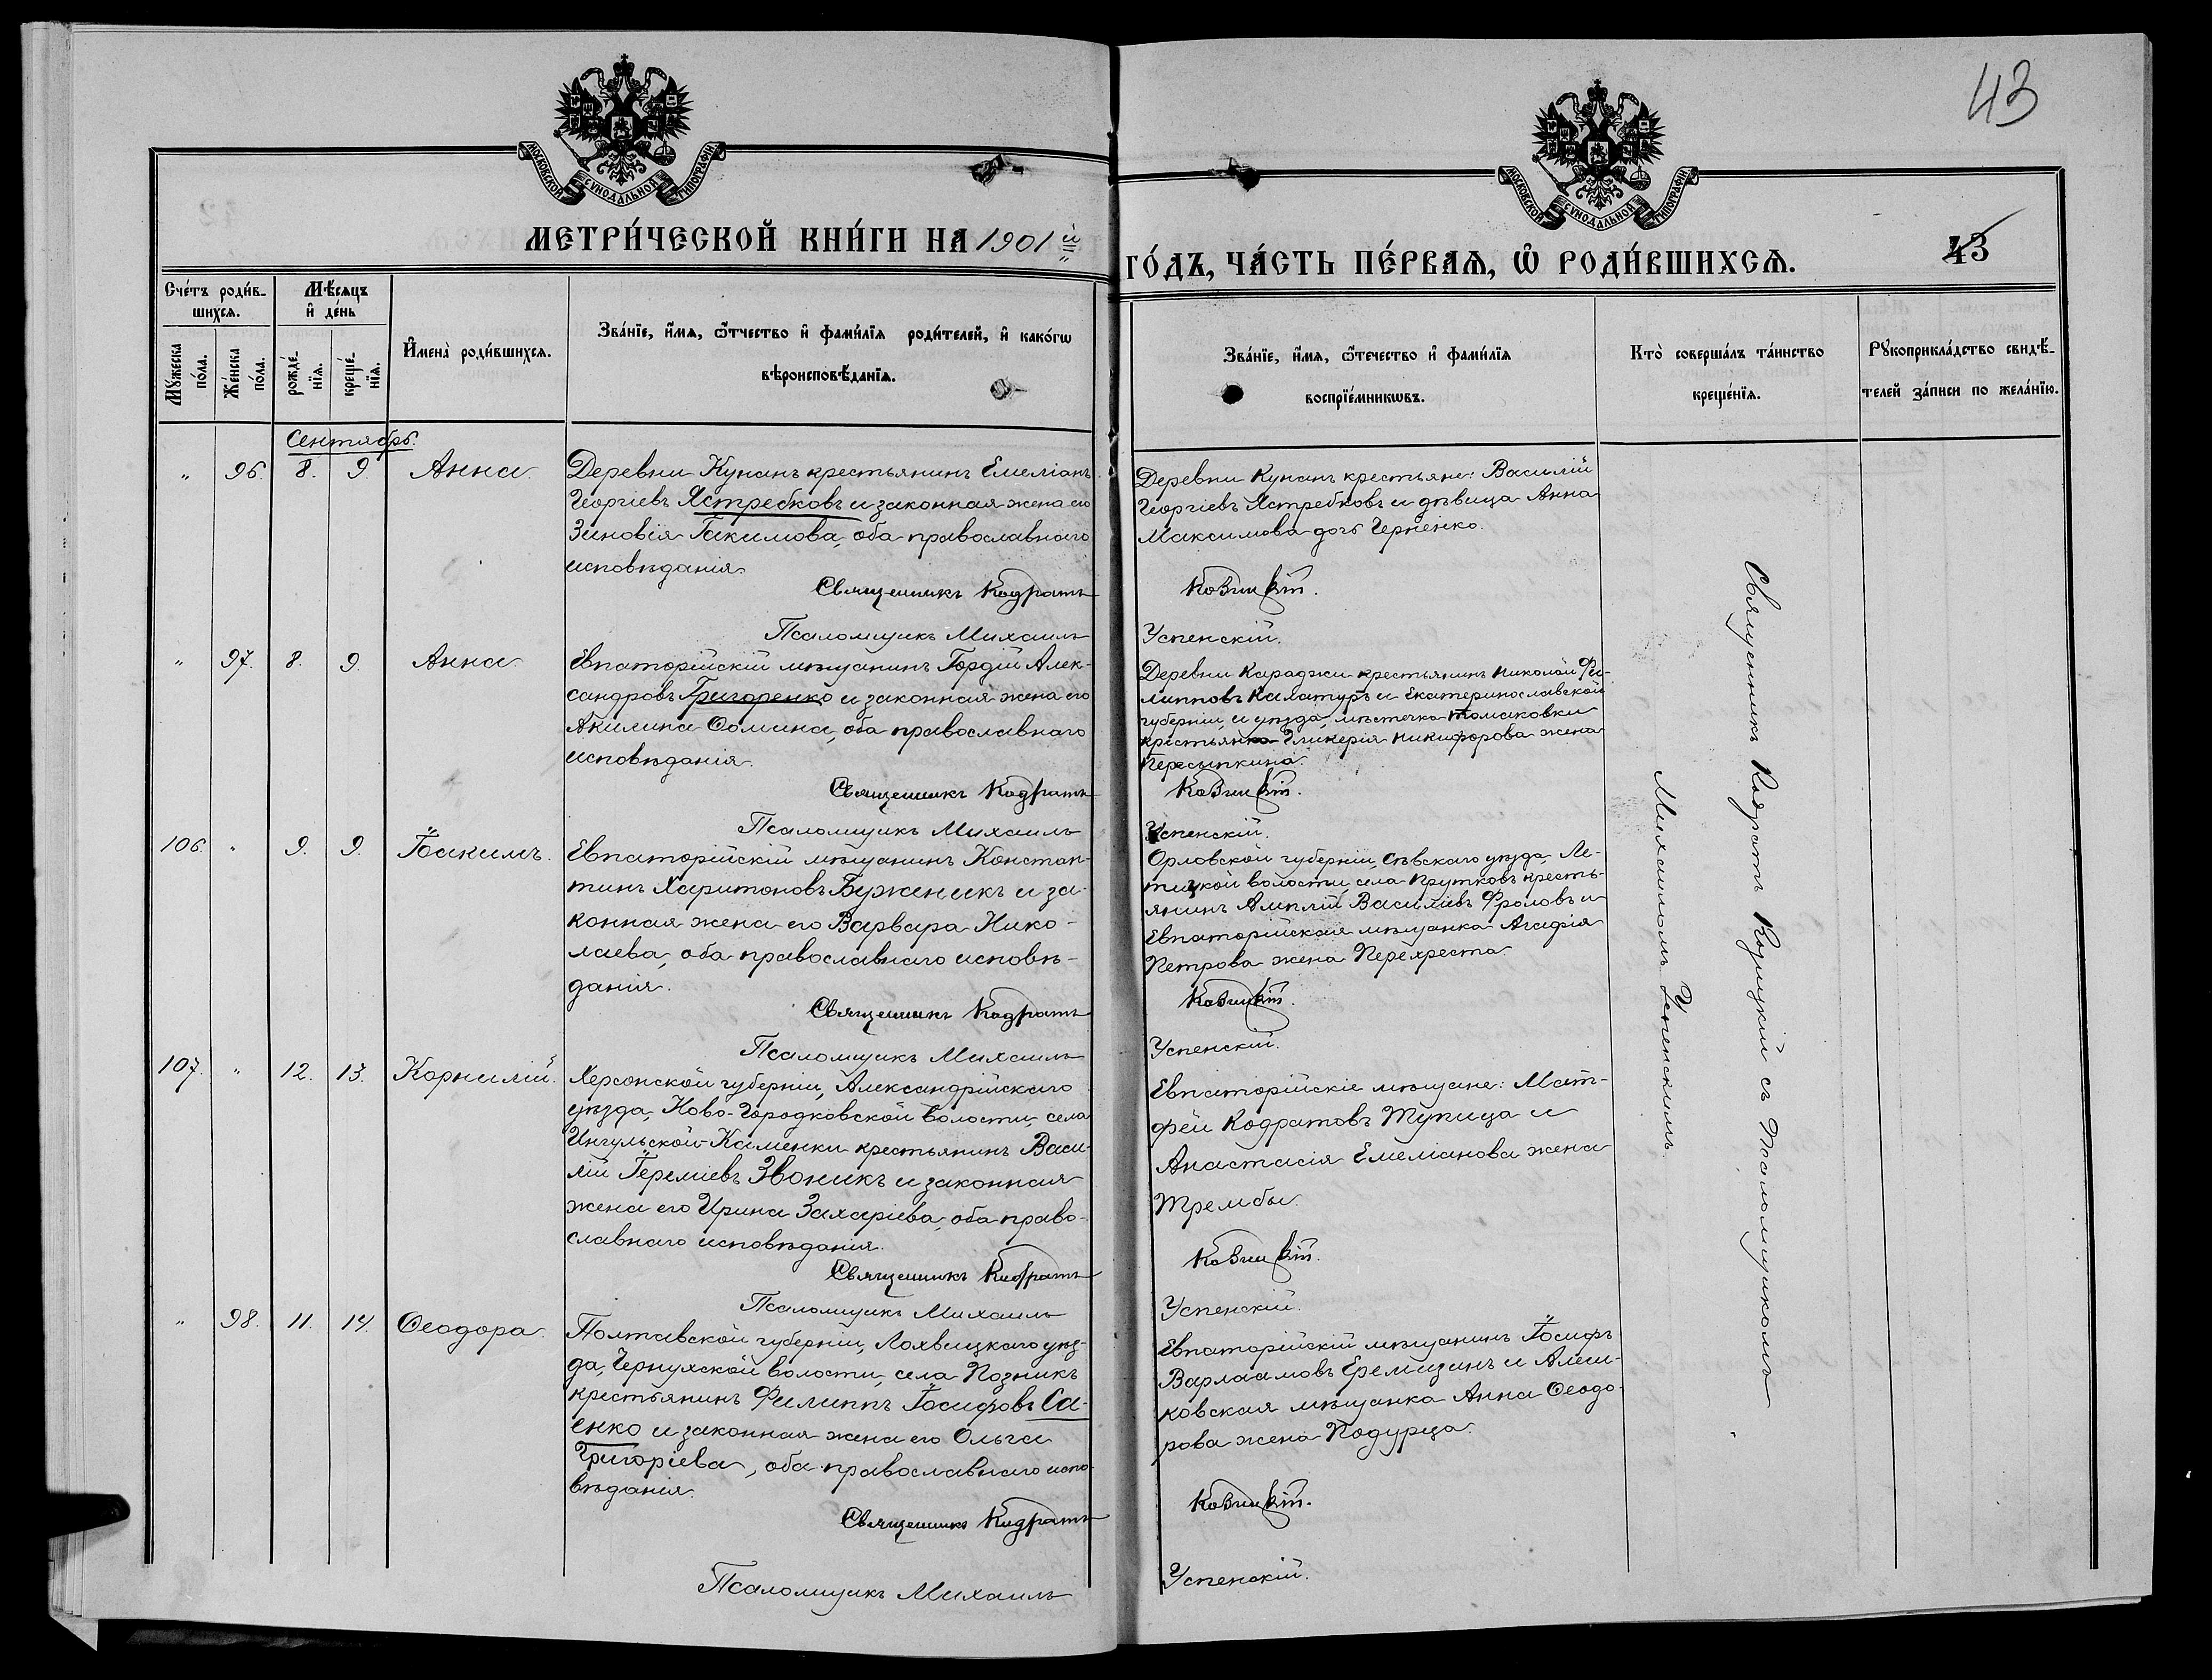 43
МОСКОВСКОЙ СѴНОДАЛЬНОЙ ТИПОГРАФІИ
МОСКОВСКОЙ СѴНОДАЛЬНОЙ ТИПОГРАФІИ
МЕТРИ́ЧЕСКОЙ КНИ́ГИ НА 1901й
ГО́ДЪ, ЧА́СТЬ ПЕ́РВАѦ, Ѡ҆ РОДИ́ВШИХСѦ.
43
Сче́тъ роди́в-
шихсѧ.
Мꙋжеска по́ла.
Же́нска по́ла.
Мѣ́сѧцъ
и҆ де́нь
рожде́-нїѧ.
креще́-нїѧ.
И҆мена̀ роди́вшихсѧ.
Зва́нїе, и҆́мѧ, ѻ҆́тчество и҆ фами́лїѧ роди́телей, и҆ како́гѡ
вѣроисповѣ́данїѧ.
Зва́нїе, и҆́мѧ, ѻ҆́течество и҆ фами́лїѧ
воспрїе́мникѡвъ.
Кто̀ соверша́лъ та́инство
креще́нїѧ.
Рꙋкоприкла́дство свидѣ́-
телей за́писи по жела́нїю.
Сентябрь.
" 96. 8. 9. Анна.
Деревни Кунанъ крестьянинъ Емеліанъ
Георгіевъ Ястребковъ и законная жена его
Зиновія Іакимова, оба православнаго
исповѣданія.
Священникъ Кодратъ
Псаломщикъ Михаилъ
Деревни Кунанъ крестьяне: Василій
Георгіевъ Ястребковъ и дѣвица Анна
Максимова дочь Черненко.
Козицкій.
Успенскій.
" 97. 8. 9. Анна
Евпаторійскій мѣщанинъ Гордій Алек-
сандровъ Григоренко и законная жена его
Акилина Ѳомина, оба православнаго
исповѣданія.
Священникъ Кодратъ
Псаломщикъ Михаилъ
Деревни Караджи крестьянинъ Николай Фи-
липповъ Калатуръ и Екатеринославской
губерніи, и уѣзда, мѣстечка Томаковки
крестьянка Гликерія Никифорова жена
Пересыпкина.
Козицкій.
Успенскій.
106. " 9. 9. Іоакимъ.
Евпаторійскій мѣщанинъ Констан-
тинъ Харитоновъ Буженикъ и за-
конная жена его Варвара Нико-
лаева, оба православнаго исповѣ-
данія.
Священникъ Кодратъ
Псаломщикъ Михаилъ
Орловской губерніи, Сѣвскаго уѣзда, Ле-
тицкой волости, села Прутковъ кресть-
янинъ Амплій Василіевъ Фроловъ и
Евпаторійская мѣщанка Агафія
Петрова жена Перехреста.
Козицкій.
Успенскій.
107. " 12. 13. Корнилій.
Херсонской губерніи, Александрійскаго
уѣзда, Ново-Городковской волости, села
Ингульской-Каменки крестьянинъ Васи-
лій Іереміевъ Звоникъ и законная
жена его Ирина Захаріева, оба право-
славнаго исповѣданія.
Священникъ Кодратъ
Псаломщикъ Михаилъ
Евпаторійскіе мѣщане: Мат-
фей Кодратовъ Тупица и
Анастасія Емеліанова жена
Трембы.
Козицкій.
Успенскій.
" 98. 11. 14. Ѳеодора.
Полтавской губерніи, Лохвицкаго уѣз-
да, Чернухской волости, села Позникъ
крестьянинъ Филиппъ Іосифовъ Са-
енко и законная жена его Ольга
Григоріева, оба православнаго испо-
вѣданія.
Священникъ Кодратъ
Псаломщикъ Михаилъ
Евпаторійскій мѣщанинъ Іосифъ
Варлаамовъ Еремизинъ и Алеш-
ковская мѣщанка Анна Ѳеодо-
рова жена Подурца.
Козицкій.
Успенскій.
Священникъ Кодратъ Козицкій съ Псаломщикомъ
Михаиломъ Успенскимъ.